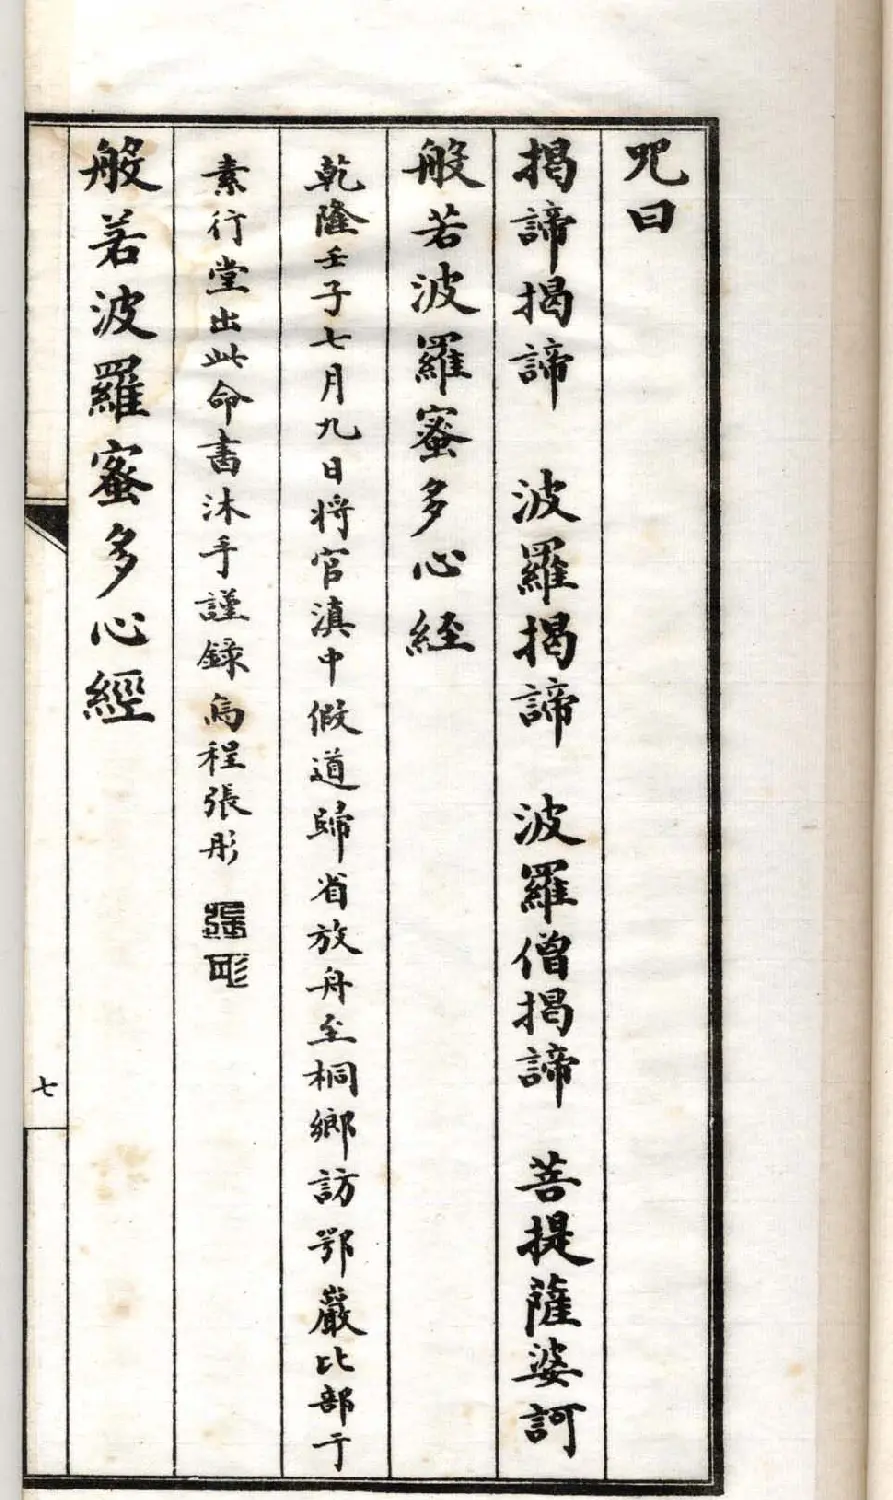 咒曰
揭諦揭諦 波羅揭諦 波羅僧揭諦 菩提薩婆訶
般若波羅蜜多心經
乾隆壬子七月九日將官滇中假道歸省放舟至桐鄉訪鄂巖比部于
素行堂出此命書沐手謹錄烏程張彤
張彤
般若波羅蜜多心經
七